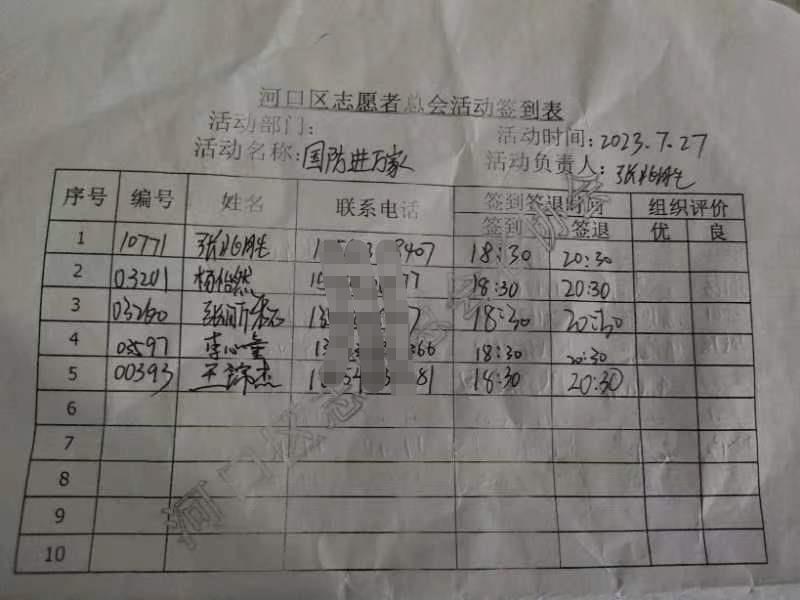 河口区志愿者总会活动签到表
活动部门: 活动时间: 2023.7.27
活动名称: 国防进万家 活动负责人: 张兆胜
序号 编号 姓名 联系电话 签到签退时间 组织评价
签到 签退 优 良
1 10771 张兆胜 8407 18:30 20:30
2 03201 杨怡然 77 18:30 20:30
3 03260 7 18:30 20:30
4 03597 李心童 366 18:30 20:30
5 00393 王谛杰 81 18:30 20:30
6
7
8
9
10